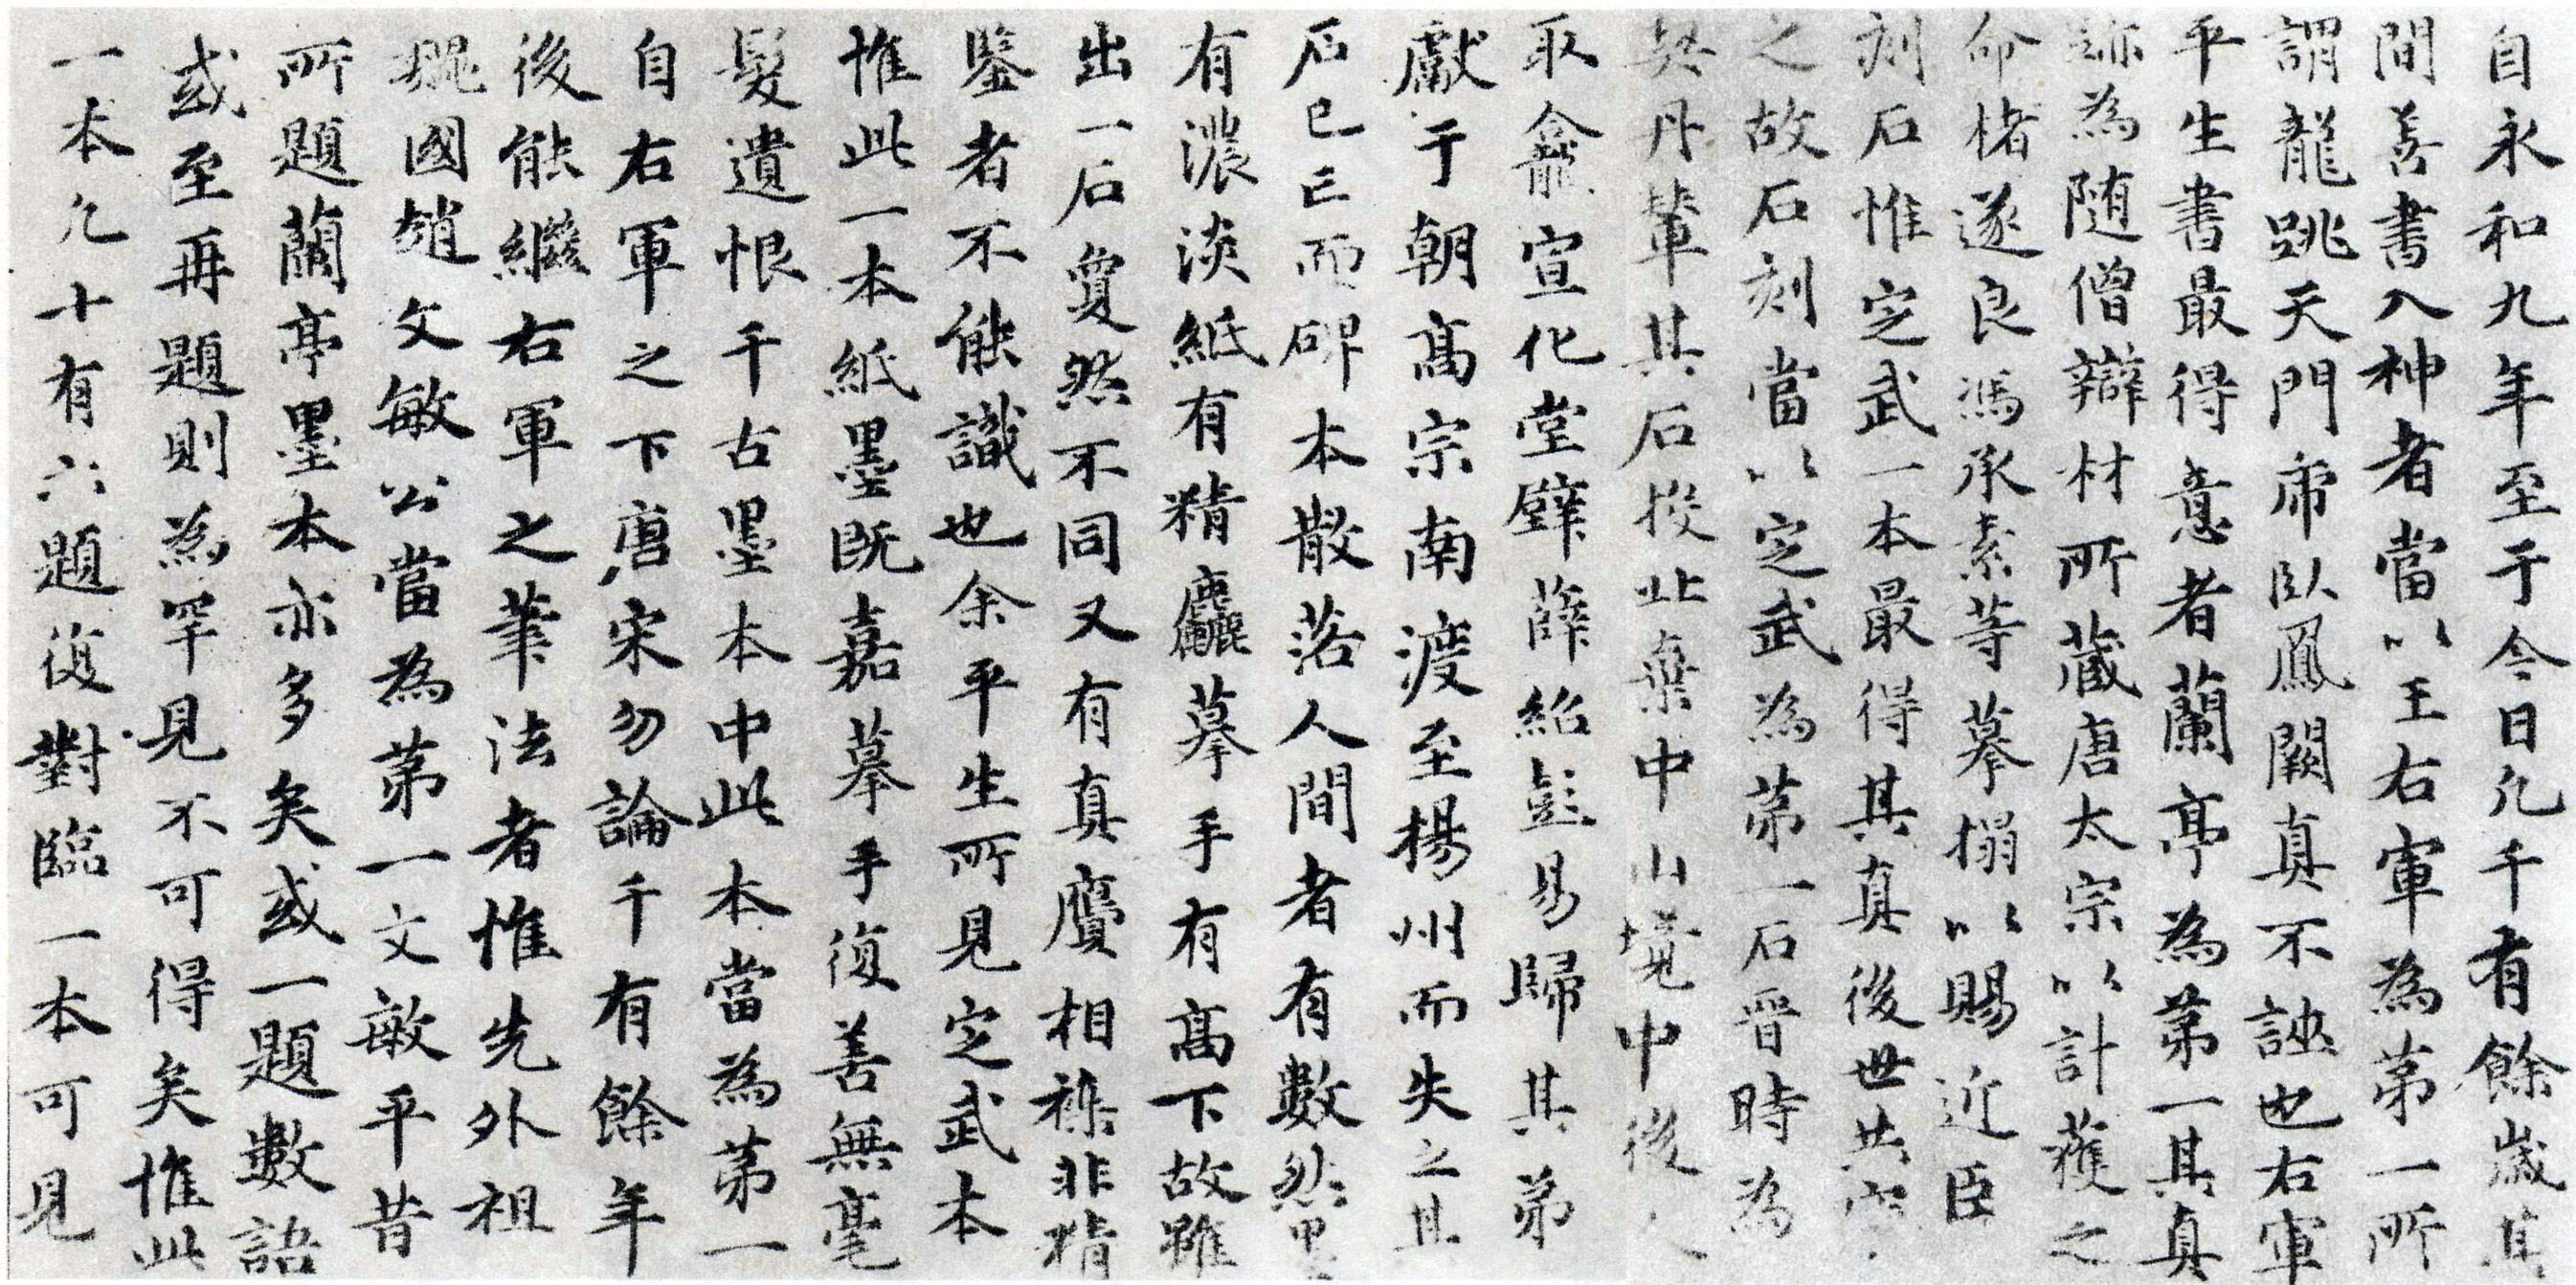 自永和九年至于今日凢千有餘歲其
間善書入神者當以王右軍為苐一所
謂龍跳天門虎臥鳳闕真不誣也右軍
平生書最得意者蘭亭為苐一其真
跡為随僧辯材所藏唐太宗以計獲之
命楮遂良馮承素等摹搨以賜近臣
刻石惟定武一本最得其真後世共寶
之故石刻當以定武為苐一石晋時為
契丹輦其石投北棄中山境中後人
取龕宣化堂壁薛紹彭易歸其弟
獻于朝髙宗南渡至揚州而失之其
后已亡而碑本散落人間者有數然墨
有濃淡紙有精麤摹手有髙下故雖
出一石敻然不同又有真贋相襍非精
鉴者不能識也余平生所見定武本
惟此一本紙墨既嘉摹手復善無毫
髮遺恨千古墨本中此本當為苐一
自右軍之下唐宋勿論千有餘年
後能繼右軍之筆法者惟先外祖
魏國趙文敏公當為苐一文敏平昔
所題蘭亭墨本亦多矣或一題數語
或至再題則為罕見不可得矣惟此
一本凢十有六題復對臨一本可見